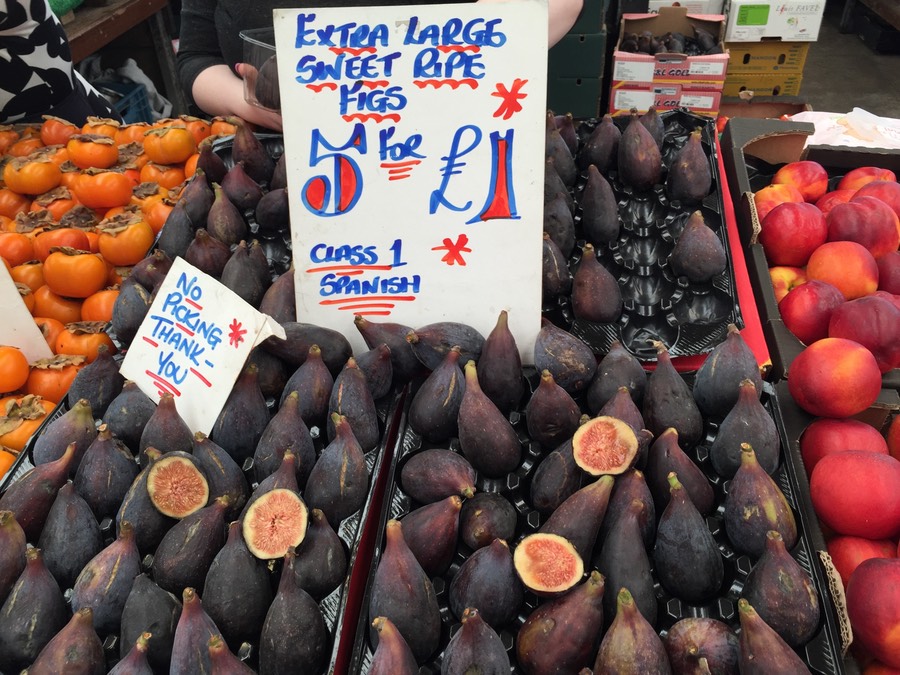 EXTRA LARGE
SWEET RIPE
FIGS
5 FOR £1
CLASS 1
SPANISH
NO
PICKING
THANK-
YOU